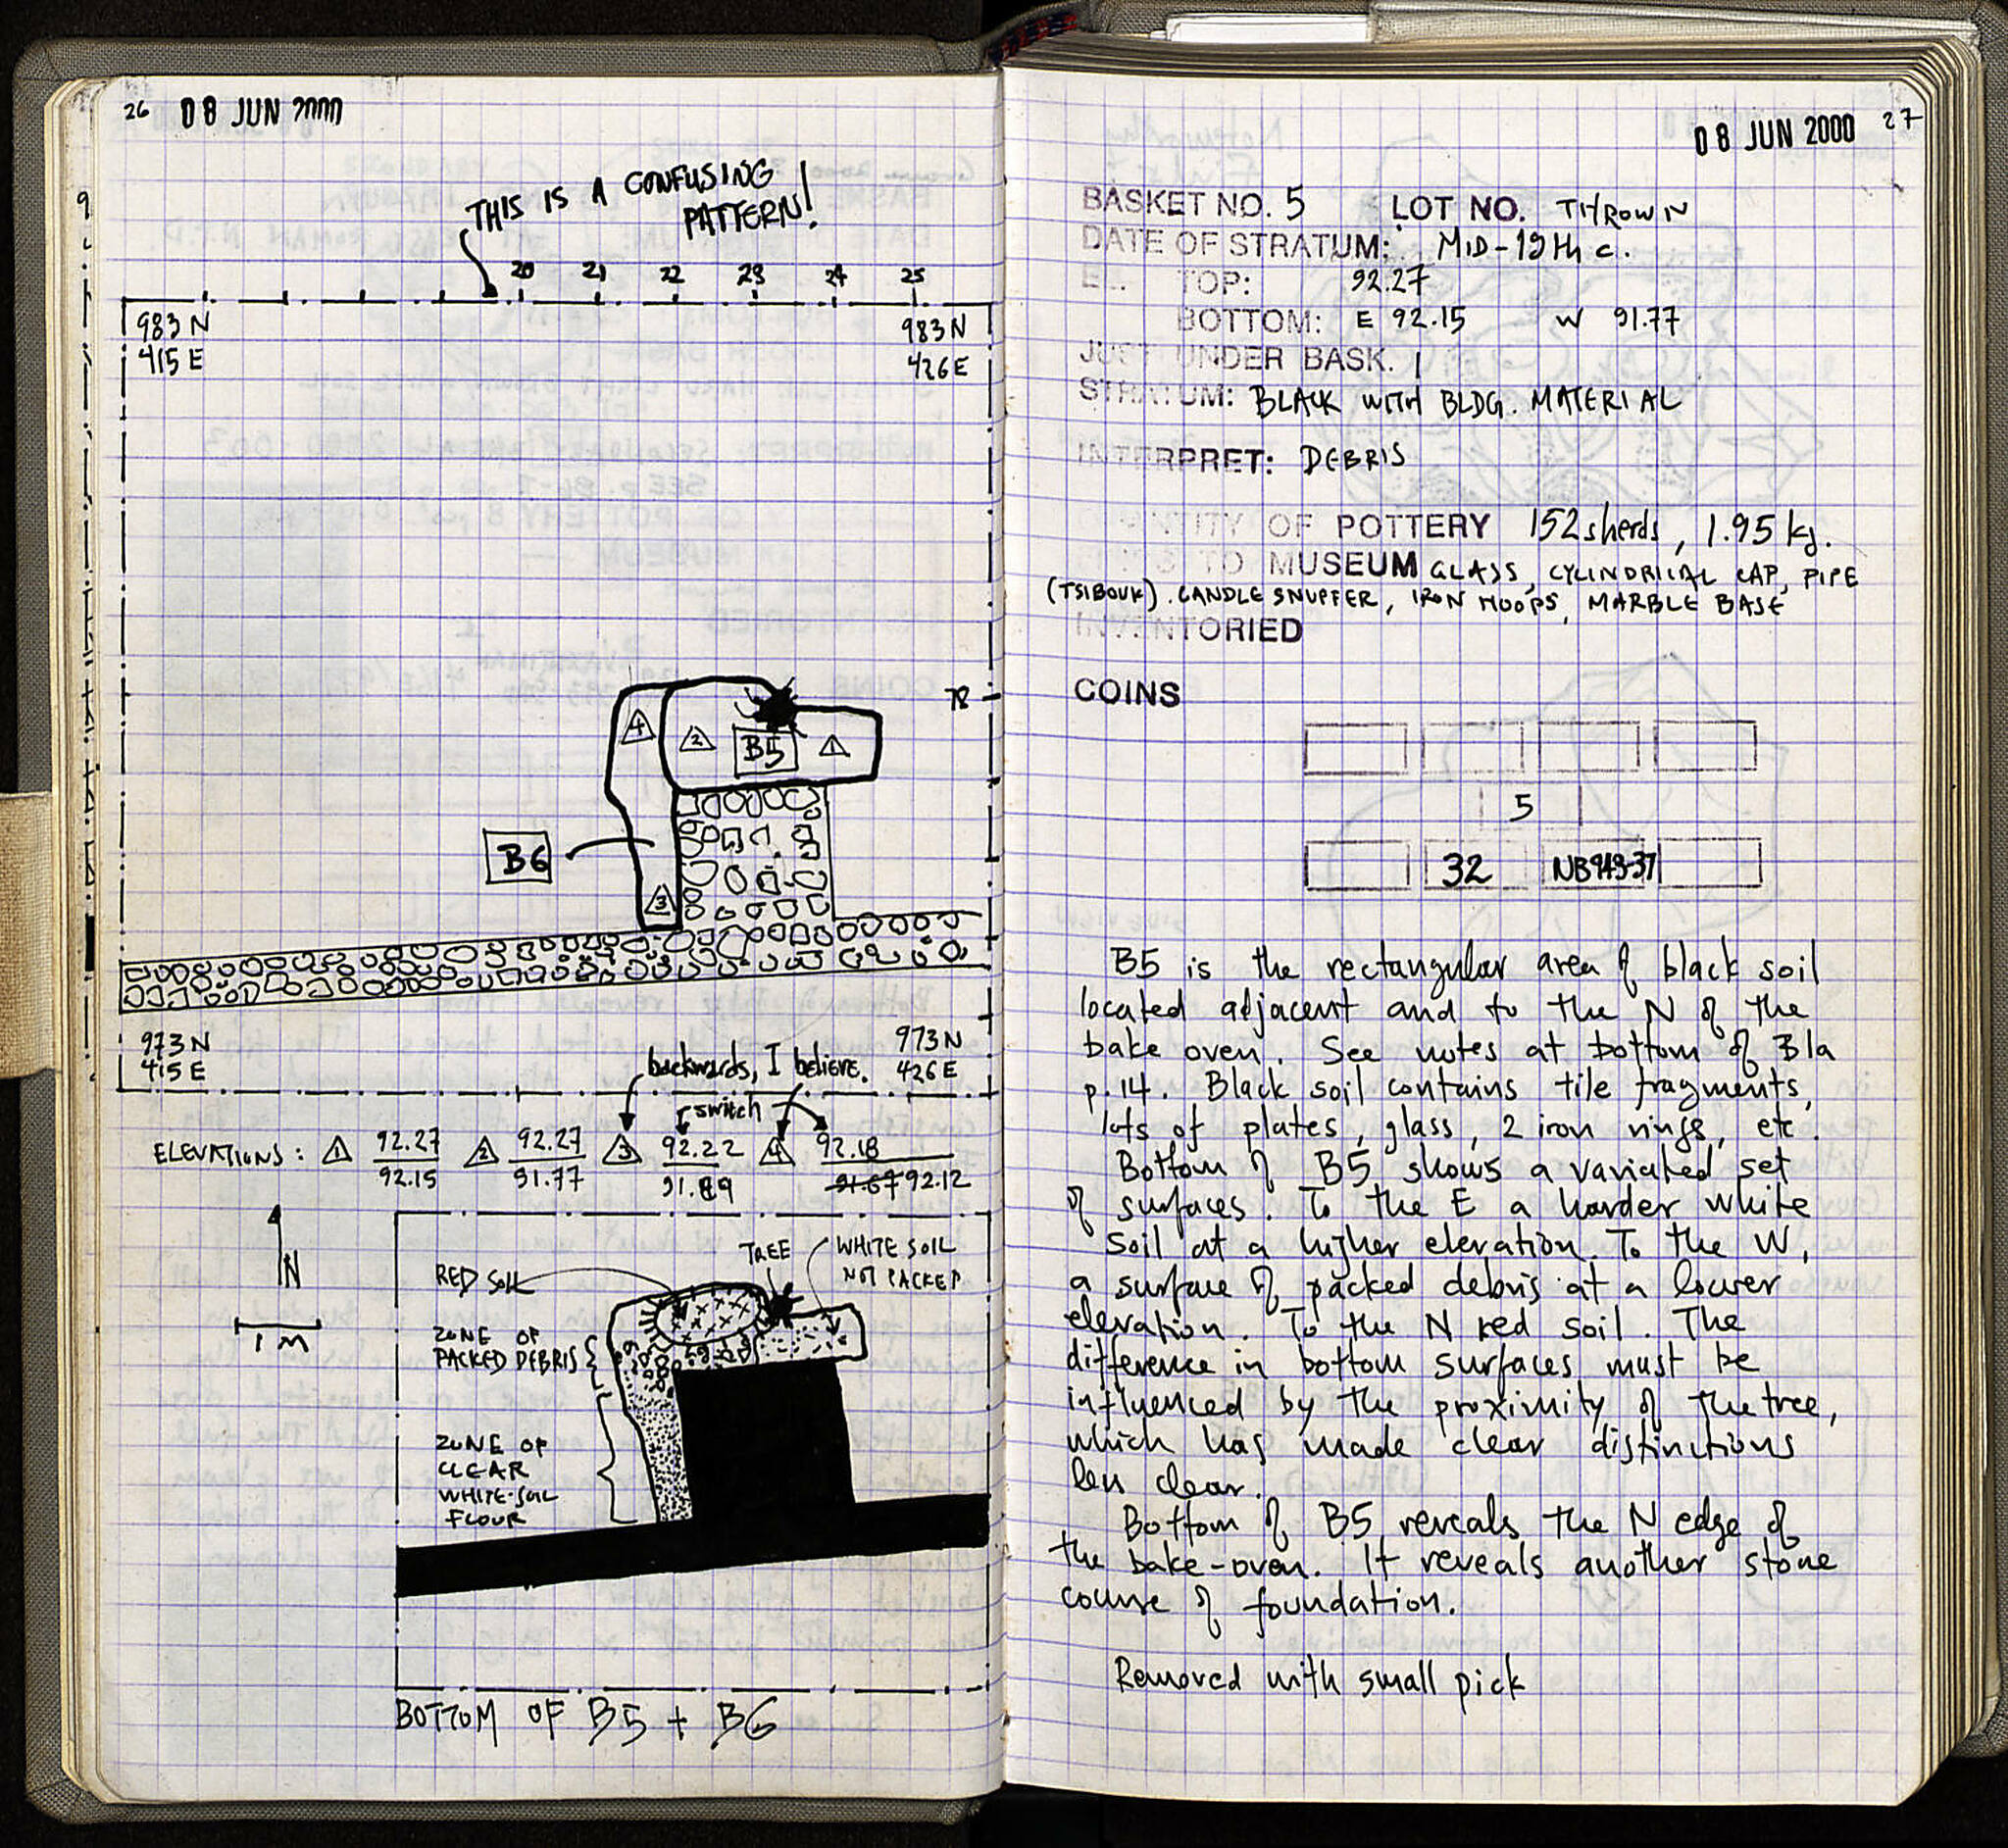 26 08 JUN 2000
THIS IS A CONFUSING
PATTERN!
20 21 22 23 24 25
983 N 983 N
415 E 426 E
78
4 2 B5 1
B6
3
973 N 973 N
415 E 426 E
backwards, I believe.
switch
ELEVATIONS: 1 92.27 2 92.27 3 92.22 4 92.18
92.15 91.77 91.89 91.67 92.12
N
1 M
TREE
WHITE SOIL
NOT PACKED
RED SOIL
ZONE OF
PACKED DEBRIS
ZONE OF
CLEAR
WHITE-SOIL
FLOUR
BOTTOM OF B5 + B6
08 JUN 2000 27
BASKET NO. 5 LOT NO. THROWN
DATE OF STRATUM: MID-19th c.
TOP: 92.27
BOTTOM: E 92.15 W 91.77
JUST UNDER BASK. 1
STRATUM: BLACK WITH BLDG. MATERIAL
INTERPRET: DEBRIS
QUANTITY OF POTTERY 152 sherds, 1.95 kg.
TO MUSEUM GLASS, CYLINDRICAL CAP, PIPE
(TSIBOUK). CANDLE SNUFFER, IRON HOOPS, MARBLE BASE
INVENTORIED
COINS
5
32 NB 943-37
B5 is the rectangular area of black soil
located adjacent and to the N of the
bake oven. See notes at bottom of B1a
p.14. Black soil contains tile fragments,
lots of plates, glass, 2 iron rings, etc.
Bottom of B5 shows a variated set
of surfaces. To the E a harder white
soil at a higher elevation. To the W,
a surface of packed debris at a lower
elevation. To the N red soil. The
difference in bottom surfaces must be
influenced by the proximity of the tree,
which has made clear distinctions
less clear.
Bottom of B5 reveals the N edge of
the bake-oven. It reveals another stone
course of foundation.
Removed with small pick